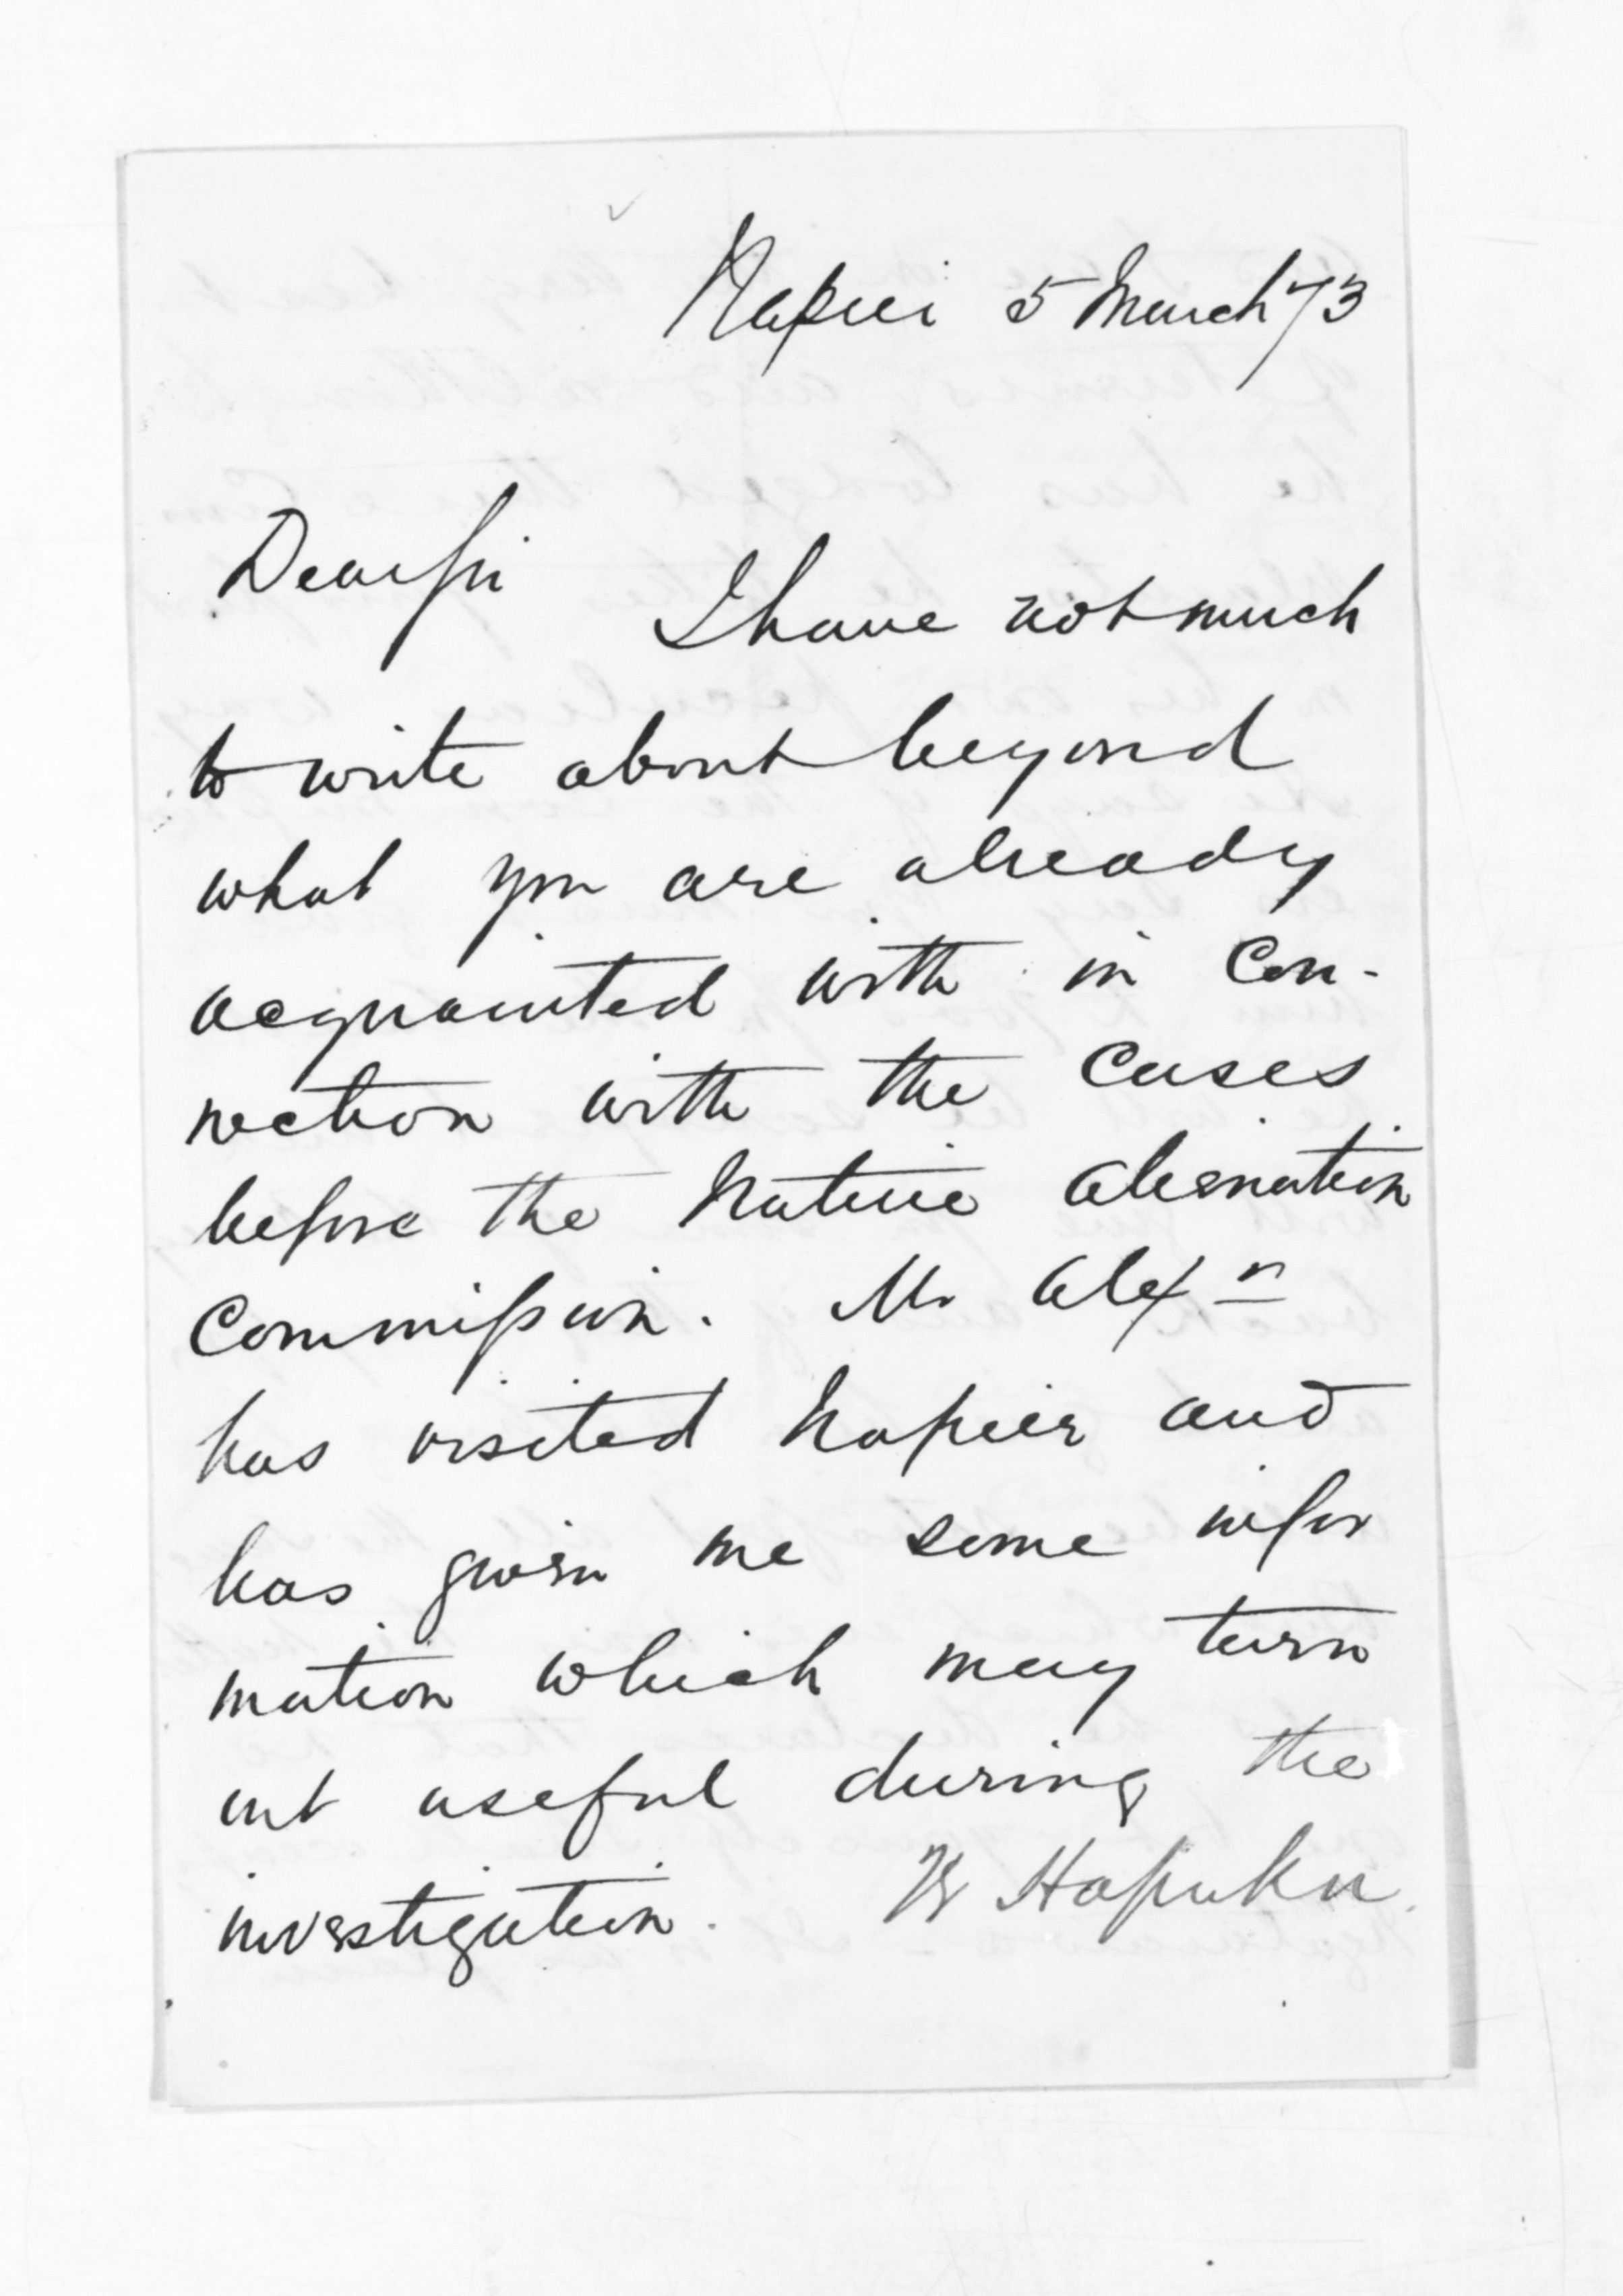 Napier 5 March 73
Dear Sir
I have not much
to write about beyond
what you are already
acquainted with in Con-
nection with the Cases
before the Native Alienation
Commission. Mr Alexr
has visited Napier and
has given me some infor
mation which may turn
out useful during the
investigation. Te Hapuku